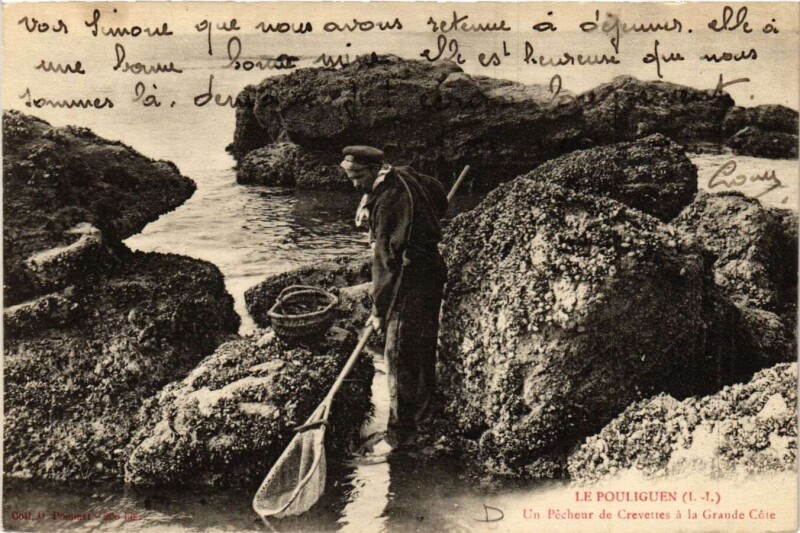 vois Simone que nous avons retenue à déjeuner. elle à
une bonne bonne mine elle est heureuse que nous
sommes là.
LE POULIGUEN (L.-I.)
Un Pêcheur de Crevettes à la Grande Côte
Coll. D.
D